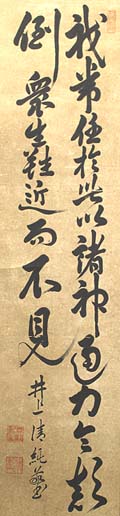 我常住於此以諸神通力令顛
倒衆生雖近而不見
井上清純敬書